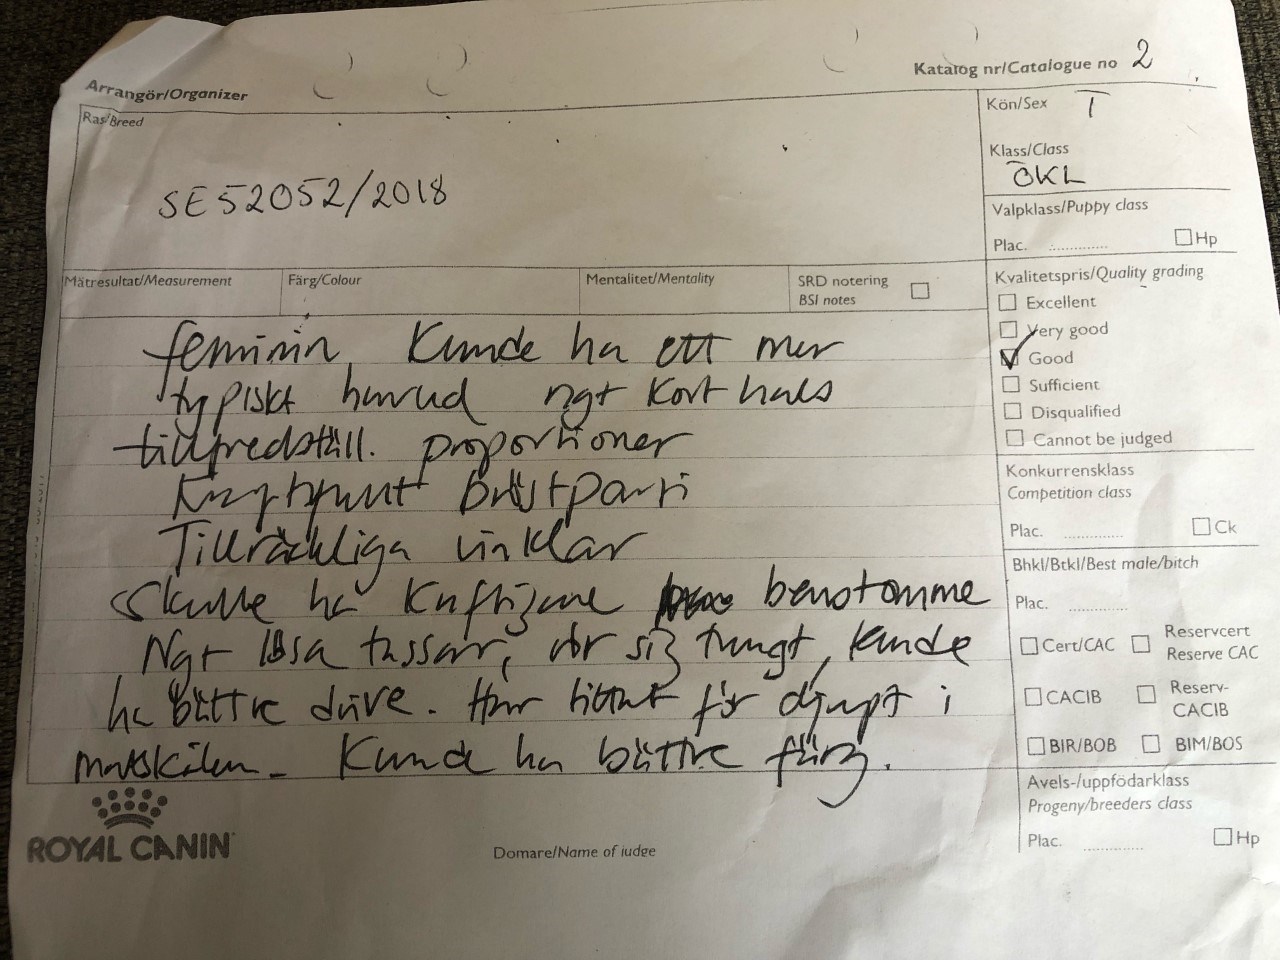 Arrangör/Organizer
Katalog nr/Catalogue no 2
Ras/Breed
SE52052/2018
Kön/Sex T
Klass/Class
ÖKL
Valpklass/Puppy class
Plac. .............. Hp
Mätresultat/Measurement
Färg/Colour
Mentalitet/Mentality
SRD notering
BSI notes
Kvalitetspris/Quality grading
Excellent
Very good
Good
Sufficient
Disqualified
Cannot be judged
Konkurrensklass
Competition class
Plac. .............. Ck
Bhkl/Btkl/Best male/bitch
Plac. ..............
Cert/CAC
Reservcert
Reserve CAC
CACIB
Reserv-
CACIB
BIR/BOB
BIM/BOS
Avels-/uppfödarklass
Progeny/breeders class
Plac. .............. Hp
feminin, Kunde ha ett mer
typiskt huvud ngt kort hals
tillfredställ. proportioner
bröstparti
Tillräckliga vinklar
Skulle ha kraftigare benstomme
Ngt lösa tassar, rör sig tungt, kunde
ha bättre driv. Har tittat för djupt i
matskålen. Kunde ha bättre färg.
ROYAL CANIN
Domare/Name of judge